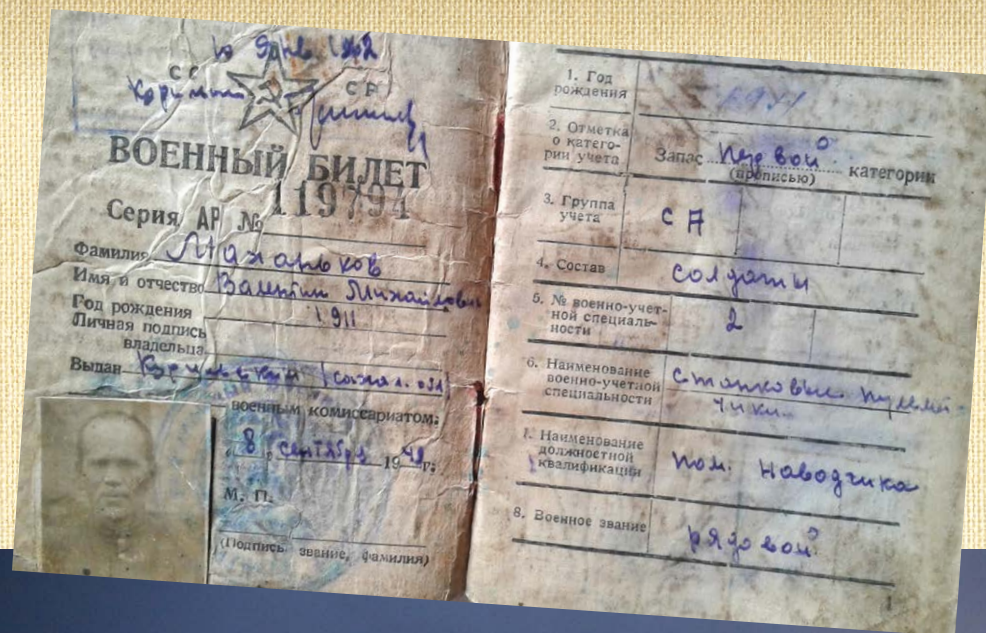 СССР
ВОЕННЫЙ БИЛЕТ
Серия АР № 119794
Фамилия Махоньков
Имя и отчество Валентин Михайлович
Год рождения 1911
Личная подпись
владельца
Выдан
военным комиссариатом;
„8„ сентября 1948 г;
М. П.
(Подпись звание, фамилия)
1. Год
рождения
1911
2. Отметка
о катего-
рии учета
Запас первой категории
(прописью)
3. Группа
учета
СА
4. Состав
солдаты
5. № военно-учет-
ной специаль-
ности
2
6. Наименование
военно-учетной
специальности
станковые пулемет
чики
7. Наименование
должностной
квалификации
пом. наводчика
8. Военное звание
рядовой
1